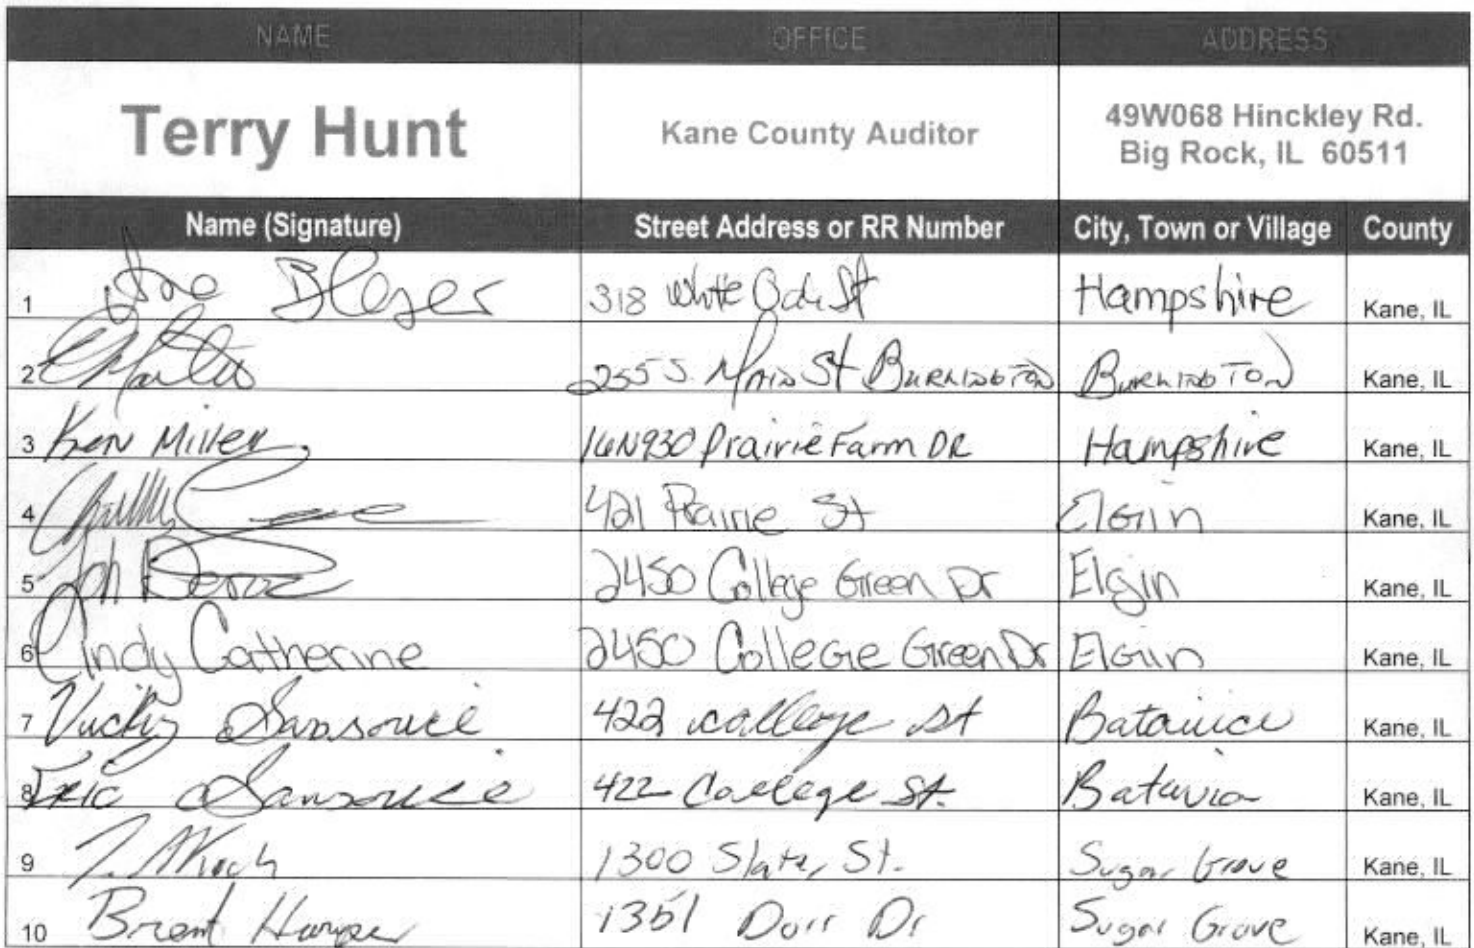 NAME OFFICE ADDRESS
Terry Hunt Kane County Auditor 49W068 Hinckley Rd.
Big Rock, IL 60511
Name (Signature) Street Address or RR Number City, Town or Village County
1 Joe Blazer 318 White Oak St Hampshire Kane, IL
2 255 S. Main St Burlington Burlington Kane, IL
3 Ken Miller 16N930 Prairie Farm DR Hampshire Kane, IL
4 421 Prairie St Elgin Kane, IL
5 2450 College Green Dr Elgin Kane, IL
6 Cindy Catherine 2450 College Green Dr Elgin Kane, IL
7 Vicky Sansoucie 422 college st Batavia Kane, IL
8 Eric Sansoucie 422 College St. Batavia Kane, IL
9 1300 Slater St. Sugar Grove Kane, IL
10 Brent Harper 1361 Dorr Dr Sugar Grove Kane, IL